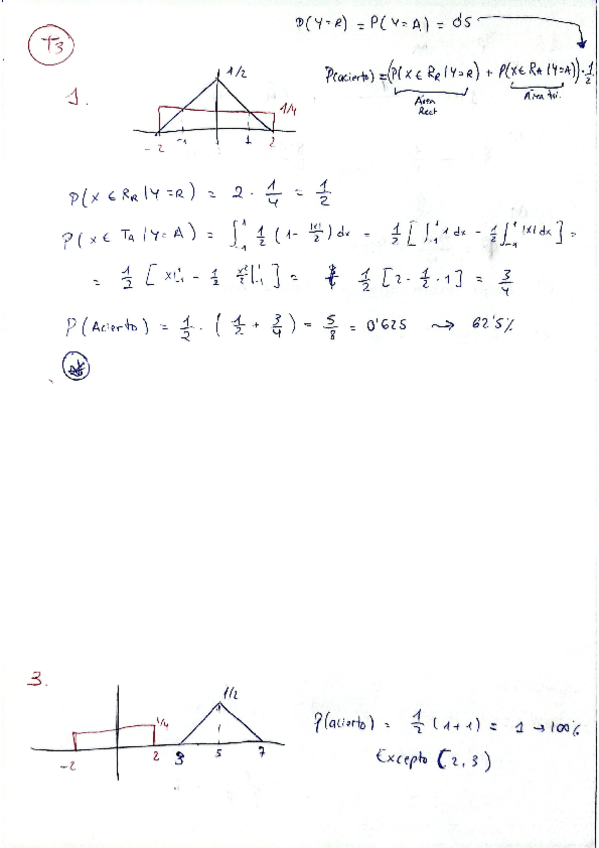 T3
P(Y=R) = P(Y=A) = 0'5
P(acierto) = (P(X∈R_R|Y=R) + P(X∈R_A|Y=A)) · 1/2
Área Rect
Área tri.
1.
1/2
1/4
-2 -1 1 2
P(X∈R_R|Y=R) = 2 · 1/4 = 1/2
P(X∈T_A|Y=A) = ∫_{-1}^{1} 1/2 (1 - |x|/2) dx = 1/2 [∫_{-1}^{1} 1 dx - 1/2 ∫_{-1}^{1} |x| dx] =
= 1/2 [x|_{-1}^{1} - 1/2 x²/2|_{-1}^{1}] = 1/2 [2 - 1/2 · 1] = 3/4
P(Acierto) = 1/2 · (1/2 + 3/4) = 5/8 = 0'625 ⇝ 62'5%
3.
1/2
1/4
-2 2 3 5 7
P(acierto) = 1/2 (1+1) = 1 → 100%
Excepto (2,3)